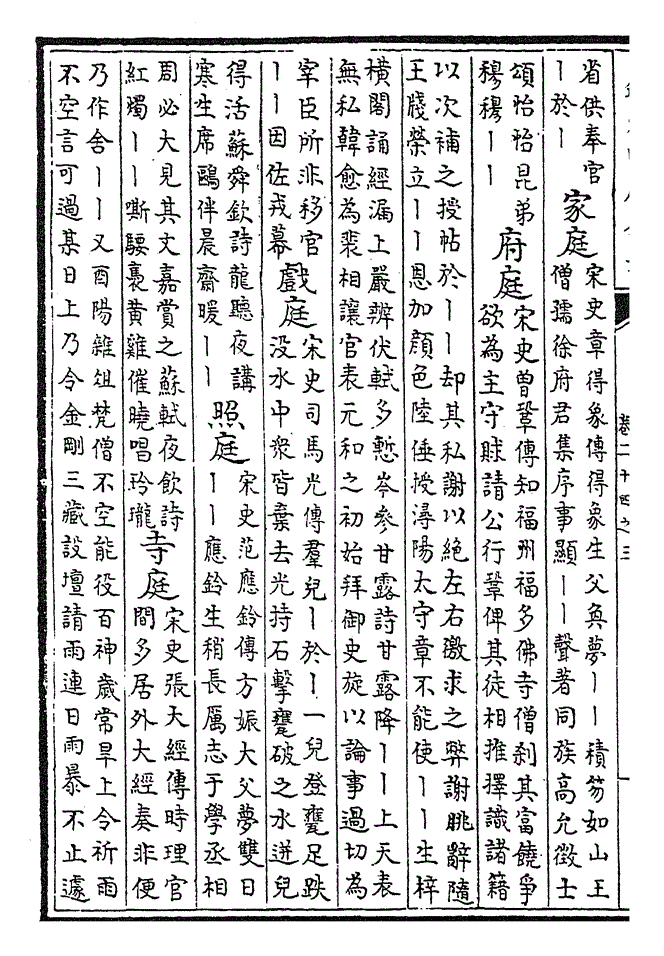 省供奉官
丨於丨
家庭
宋史章得象傳得象生父奐夢丨丨積笏如山王
僧孺徐府君集序事顯丨丨聲著同族高允徵士
頌怡怡昆弟
穆穆丨丨
府庭
宋史曾鞏傳知福州福多佛寺僧刹其富饒爭
欲為主守賕請公行鞏俾其徒相推擇識諸籍
以次補之授帖於丨丨却其私謝以絶左右徼求之弊謝朓辭隨
王牋榮立丨丨恩加顔色陸倕授潯陽太守章不能使丨丨生梓
橫閣誦經漏上嚴辨伏軾多慙岑參甘露詩甘露降丨丨上天表
無私韓愈為裴相讓官表元和之初始拜御史旋以論事過切為
宰臣所非移官
丨丨因佐戎幕
戲庭
宋史司馬光傳羣兒丨於丨一兒登甕足跌
没水中衆皆棄去光持石擊甕破之水迸兒
得活蘇舜欽詩龍聽夜講
寒生席鷗伴晨齋暖丨丨
照庭
宋史范應鈴傳方娠大父夢雙日
丨丨應鈴生稍長厲志于學丞相
周必大見其文嘉賞之蘇軾夜飲詩
紅燭丨丨嘶騕褭黄雞催曉唱玲瓏
寺庭
宋史張大經傳時理官
問多居外大經奏非便
乃作舍丨丨又酉陽雜俎梵僧不空能役百神歲常旱上令祈雨
不空言可過某日上乃令金剛三藏設壇請雨連日雨暴不止遽
卷二十四之三